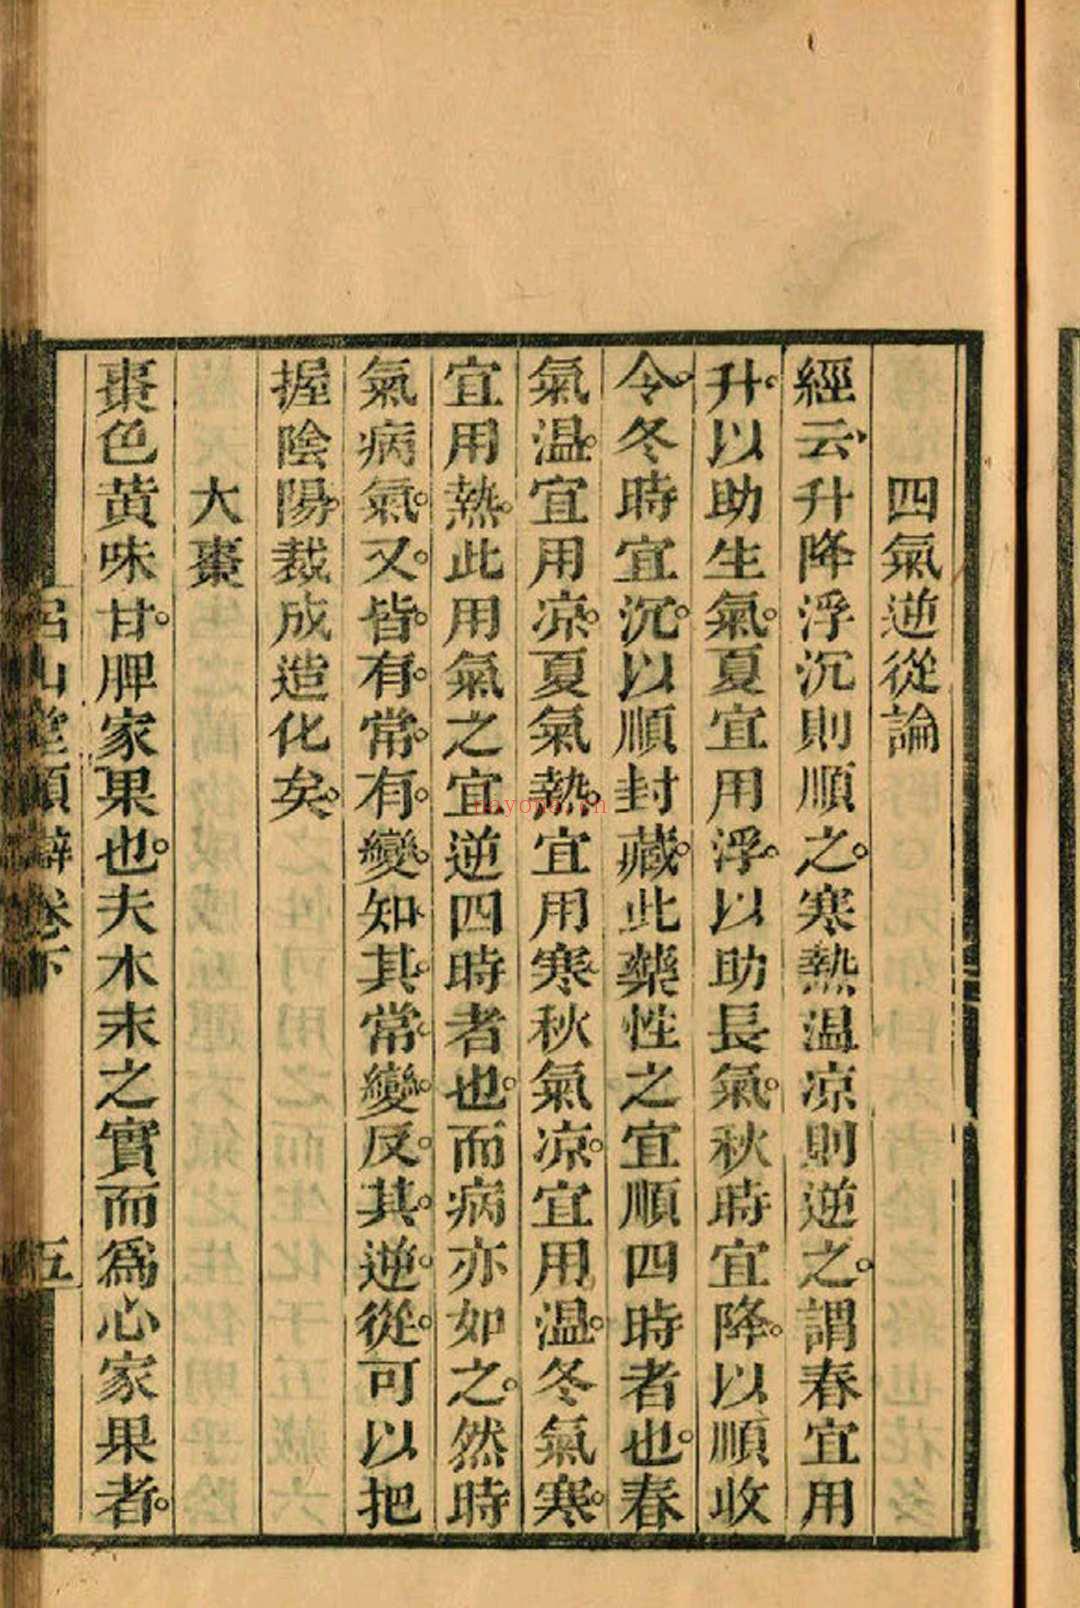 四氣逆從論
經云、升降浮沉則順之。寒熱温凉則逆之。謂春宜用
升。以助生氣。夏宜用浮。以助長氣。秋時宜降。以順收
令。冬時宜沉。以順封藏。此藥性之宜順四時者也。春
氣温。宜用凉。夏氣熱。宜用寒。秋氣凉。宜用温。冬氣寒。
宜用熱。此用氣之宜逆四時者也。而病亦如之。然時
氣病氣。又。皆。有。常。有。變。知其。常。變。反。其。逆。從。可以把
握陰陽。裁成造化矣。
大棗
棗色黄味甘。脾家果也。夫木末之實而爲心家果者。
卷下
五